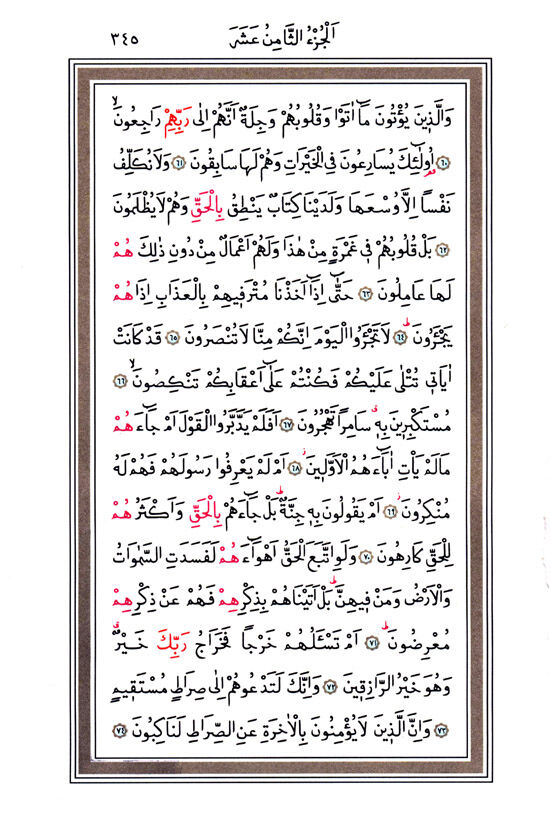 اَلْجُزْءُ الثَّامِنُ عَشَرَ ٣٤٥
وَالَّذ۪ينَ يُؤْتُونَ مَٓا اٰتَوْا وَقُلُوبُهُمْ وَجِلَةٌ اَنَّهُمْ اِلٰى رَبِّهِمْ رَاجِعُونَۙ
﴿٦٠﴾ اُو۬لٰٓئِكَ يُسَارِعُونَ فِي الْخَيْرَاتِ وَهُمْ لَهَا سَابِقُونَ ﴿٦١﴾ وَلَا نُكَلِّفُ
نَفْسًا اِلَّا وُسْعَهَا وَلَدَيْنَا كِتَابٌ يَنْطِقُ بِالْحَقِّ وَهُمْ لَا يُظْلَمُونَ
﴿٦٢﴾ بَلْ قُلُوبُهُمْ ف۪ي غَمْرَةٍ مِنْ هٰذَا وَلَهُمْ اَعْمَالٌ مِنْ دُونِ ذٰلِكَ هُمْ
لَهَا عَامِلُونَ ﴿٦٣﴾ حَتّٰٓى اِذَٓا اَخَذْنَا مُتْرَف۪يهِمْ بِالْعَذَابِ اِذَا هُمْ
يَجْـَٔرُونَۜ ﴿٦٤﴾ لَا تَجْـَٔرُوا الْيَوْمَ اِنَّكُمْ مِنَّا لَا تُنْصَرُونَ ﴿٦٥﴾ قَدْ كَانَتْ
اٰيَات۪ي تُتْلٰى عَلَيْكُمْ فَكُنْتُمْ عَلٰٓى اَعْقَابِكُمْ تَنْكِصُونَۙ ﴿٦٦﴾
مُسْتَكْبِر۪ينَ بِه۪ۗ سَامِرًا تَهْجُرُونَ ﴿٦٧﴾ اَفَلَمْ يَدَّبَّرُوا الْقَوْلَ اَمْ جَٓاءَهُمْ
مَا لَمْ يَأْتِ اٰبَٓاءَهُمُ الْاَوَّل۪ينَۘ ﴿٦٨﴾ اَمْ لَمْ يَعْرِفُوا رَسُولَهُمْ فَهُمْ لَهُ
مُنْكِرُونَۘ ﴿٦٩﴾ اَمْ يَقُولُونَ بِه۪ جِنَّةٌۜ بَلْ جَٓاءَهُمْ بِالْحَقِّ وَاَكْثَرُهُمْ
لِلْحَقِّ كَارِهُونَ ﴿٧٠﴾ وَلَوِ اتَّبَعَ الْحَقُّ اَهْوَٓاءَهُمْ لَفَسَدَتِ السَّمٰوَاتُ
وَالْاَرْضُ وَمَنْ ف۪يهِنَّۜ بَلْ اَتَيْنَاهُمْ بِذِكْرِهِمْ فَهُمْ عَنْ ذِكْرِهِمْ
مُعْرِضُونَۜ ﴿٧١﴾ اَمْ تَسْـَٔلُهُمْ خَرْجًا فَخَرَاجُ رَبِّكَ خَيْرٌۗ
وَهُوَ خَيْرُ الرَّازِق۪ينَ ﴿٧٢﴾ وَاِنَّكَ لَتَدْعُوهُمْ اِلٰى صِرَاطٍ مُسْتَق۪يمٍ
﴿٧٣﴾ وَاِنَّ الَّذ۪ينَ لَا يُؤْمِنُونَ بِالْاٰخِرَةِ عَنِ الصِّرَاطِ لَنَاكِبُونَ ﴿٧٤﴾